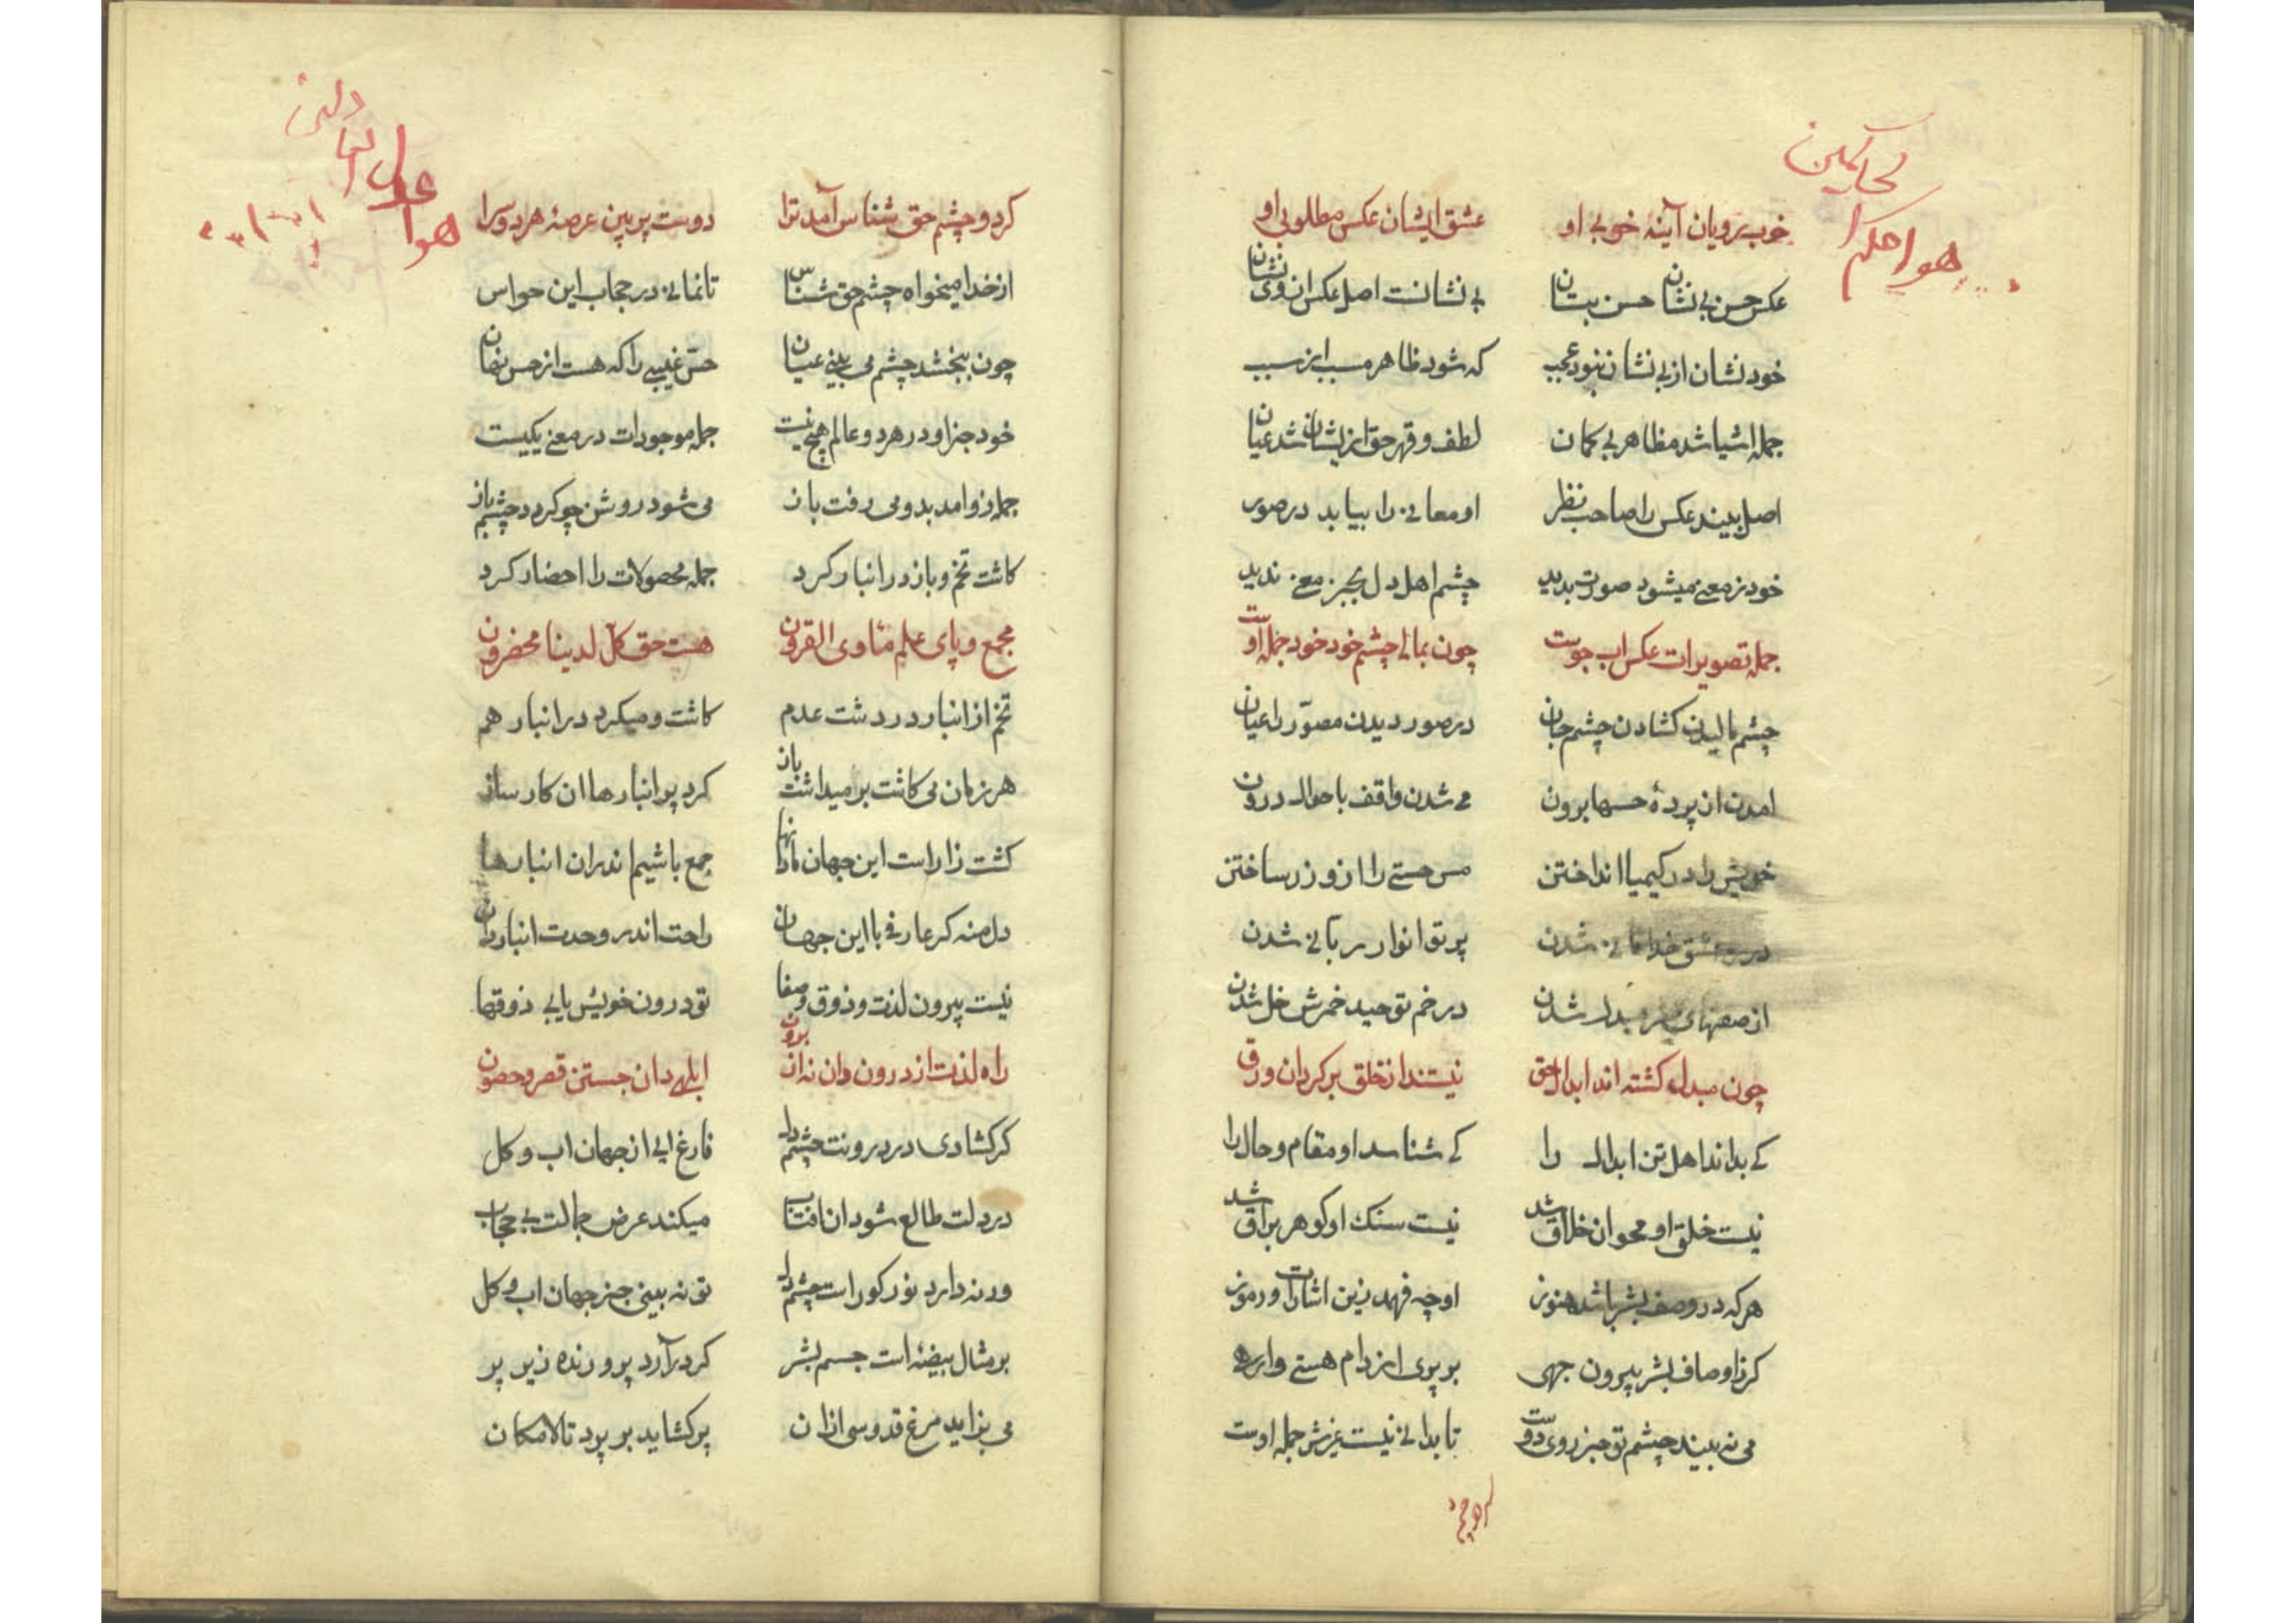 احکم
الحاکمین
هو
خوب رویان آینهٔ خوبی او    عشق ایشان عکس مطلوبی او
عکس حسن بی نشان حسن بتان    بی نشانست اصل عکس از وی نشان
خود نشان از بی نشان نبود عجب    که شود ظاهر مسبب از سبب
جمله اشیا شد مظاهر بی کمان    لطف و قهر حق ازیشان شد عیان
اصل بیند عکس را صاحب نظر    او معانی را بیابد در صور
خود ز معنی میشود صورت بدید    چشم اهل دل بجز معنی ندید
جمله تصویرات عکس اب جوست    چون بمالی چشم خود خود جمله اوست
چشم مالیدن کشادن چشم جان    در صور دیدن مصوّر را عیان
امدن از پردهٔ حسها برون    می شدن واقف باحوال درون
خویش را در کیمیا انداختن    مس هستی را ازو زر ساختن
در عشق خدا فانی شدن    پرتو انوار ربانی شدن
از صفتهای بشر مبدل شدن    در خم توحید خمرش خل شدن
چون مبدل کشته اند ابدال حق    نیستند از خلق بر کردان ورق
کی بداند اهل تن ابدال را    کی شناسد او مقام و حال را
نیست خلق او محو ان خلاق شد    نیست سنک او کوهر براق شد
هرکه در وصف بشر باشد هنوز    او چه فهمد زین اشارات و رموز
کر ز اوصاف بشر بیرون جهی    بر پری از دام هستی وارهی
می نه بیند چشم تو جز روی دوست    تا بدانی نیست غیرش جمله اوست
کرد و چشم حق شناس آمد ترا    دوست پر بین عرصهٔ هر دو سرا
از خدا میخواه چشم حق شناس    تا نمانی در حجاب این حواس
چون ببخشد چشم می بینی عیان    حسّ غیبی را که هست از حس نهان
خود جز او در هر دو عالم هیچ نیست    جمله موجودات در معنی یکیست
جمله زو امد بدو می رفت باز    می شود روشن چو کردد چشم باز
کاشت تخم و باز در انبار کرد    جمله محصولات را احضار کرد
هست حق کل لدینا محضرون
تخم از انبار در دشت عدم    کاشت و میکرد در انبار هم
هر زمان می کاشت بر میداشت باز    کرد پر انبارها ان کار ساز
کشت زار است این جهان    جمع باشیم اندران انبارها
دل منه کر عارفی با این جهان    راحت اندر وحدت انبار دان
نیست بیرون لذت و ذوق و صفا    تو درون خویش یابی ذوقها
راه لذت از درون دان نه از برون    ابلهی دان جستن قصر و حصون
کر کشادی در درونت چشم دل    فارغ ایی از جهان اب و کل
در دلت طالع شود ان افتاب    میکند عرض جمالت بی حجاب
ورنه دارد نور کور است چشم دل    تو نه بینی جز جهان اب و کل
بر مثال بیضه است جسم بشر    کرد در آرد پرورنده زیر پر
می بزاید مرغ قدوسی ازان    پر کشاید بر پرد تا لامکان